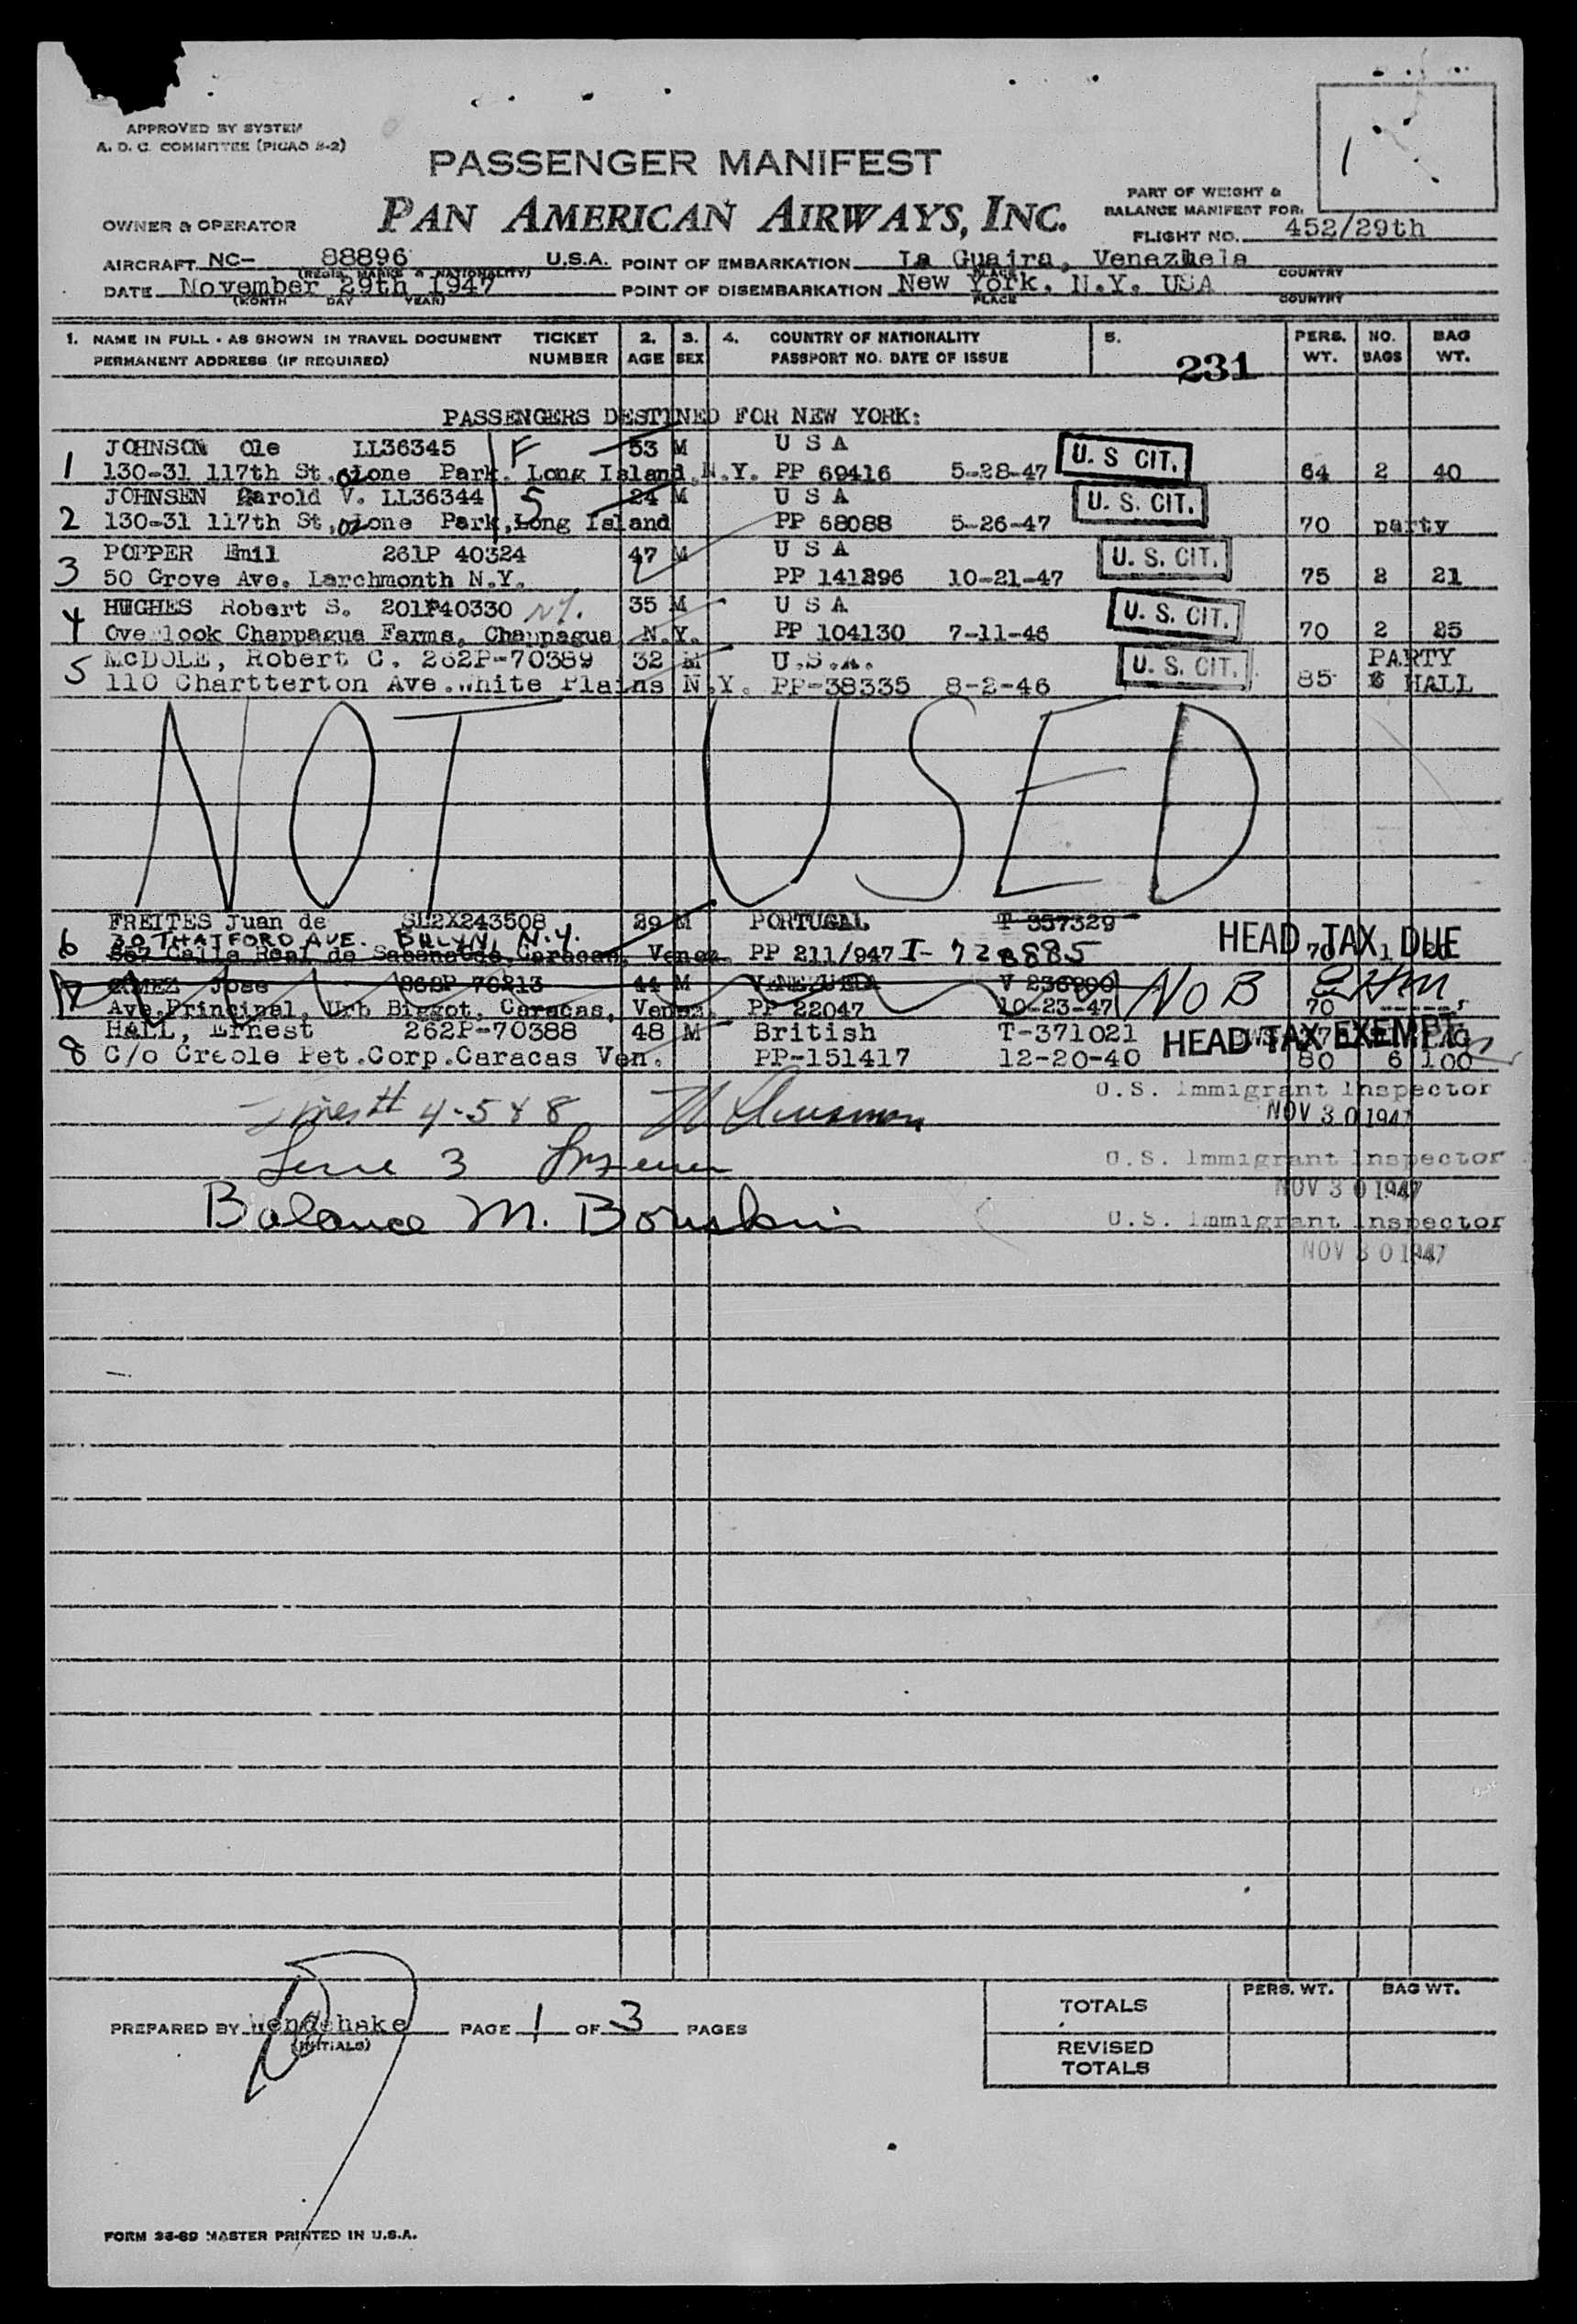 APPROVED BY SYSTEM
A. D. C. COMMITTEE (PICAO B-2)
PASSENGER MANIFEST
PAN AMERICAN AIRWAYS, INC.
OWNER & OPERATOR
PART OF WEIGHT &
BALANCE MANIFEST FOR:
FLIGHT NO. 452/29th
AIRCRAFT NC- 88896 U.S.A. POINT OF EMBARKATION La Guaira, Venezuela
(REGIS. MARKS & NATIONALITY) PLACE COUNTRY
DATE November 29th 1947 POINT OF DISEMBARKATION New York, N.Y. USA
(MONTH DAY YEAR) PLACE COUNTRY
1. NAME IN FULL - AS SHOWN IN TRAVEL DOCUMENT TICKET 2. 3. 4. COUNTRY OF NATIONALITY 5. PERS. NO. BAG
PERMANENT ADDRESS (IF REQUIRED) NUMBER AGE SEX PASSPORT NO. DATE OF ISSUE 231 WT. BAGS WT.
PASSENGERS DESTINED FOR NEW YORK:
JOHNSON Ole LL36345 F 53 M U S A U. S CIT.
1 130-31 117th St. Ozone Park. Long Island, N.Y. PP 69416 5-28-47 64 2 40
JOHNSEN Harold V. LL36344 S 24 M U S A U. S. CIT.
2 130-31 117th St, Ozone Park, Long Island PP 68088 5-26-47 70 party
POPPER Emil 261P 40324 47 M U S A U. S. CIT.
3 50 Grove Ave. Larchmonth N.Y. PP 141296 10-21-47 75 2 21
HUGHES Robert S. 201P40330 N.Y. 35 M U S A U. S. CIT.
4 Overlook Chappagua Farms, Chappagua N.Y. PP 104130 7-11-46 70 2 25
McDOLE, Robert C. 262P-70389 32 M U.S.A. U. S. CIT. PARTY
5 110 Chartterton Ave.White Plains N.Y. PP-38335 8-2-46 85 HALL
NOT USED
FREITES Juan de SL2X243508 29 M PORTUGAL T 357329
30 THATFORD AVE. BKLYN, N.Y. HEAD TAX DUE
6 Calle Real de Caracas, Venez. PP 211/947 I- 728885 70 1
GOMEZ Jose 262P 70213 44 M VENEZUELA V 236900
7 Ave.Principal, Urb Biggot, Caracas, Venez. PP 22047 10-23-47 No B 70
HALL, Ernest 262P-70388 48 M British T-371021 HEAD TAX EXEMPT
8 C/o Creole Pet.Corp.Caracas Ven. PP-151417 12-20-40 80 6 100
U.S. Immigrant Inspector
4-5 & 8 NOV 30 1947
Line 3
U.S. Immigrant Inspector
NOV 30 1947
Balance M.
U.S. Immigrant Inspector
NOV 30 1947
TOTALS PERS. WT. BAG WT.
PREPARED BY (INITIALS) PAGE 1 OF 3 PAGES
REVISED
TOTALS
FORM 26-69 MASTER PRINTED IN U.S.A.